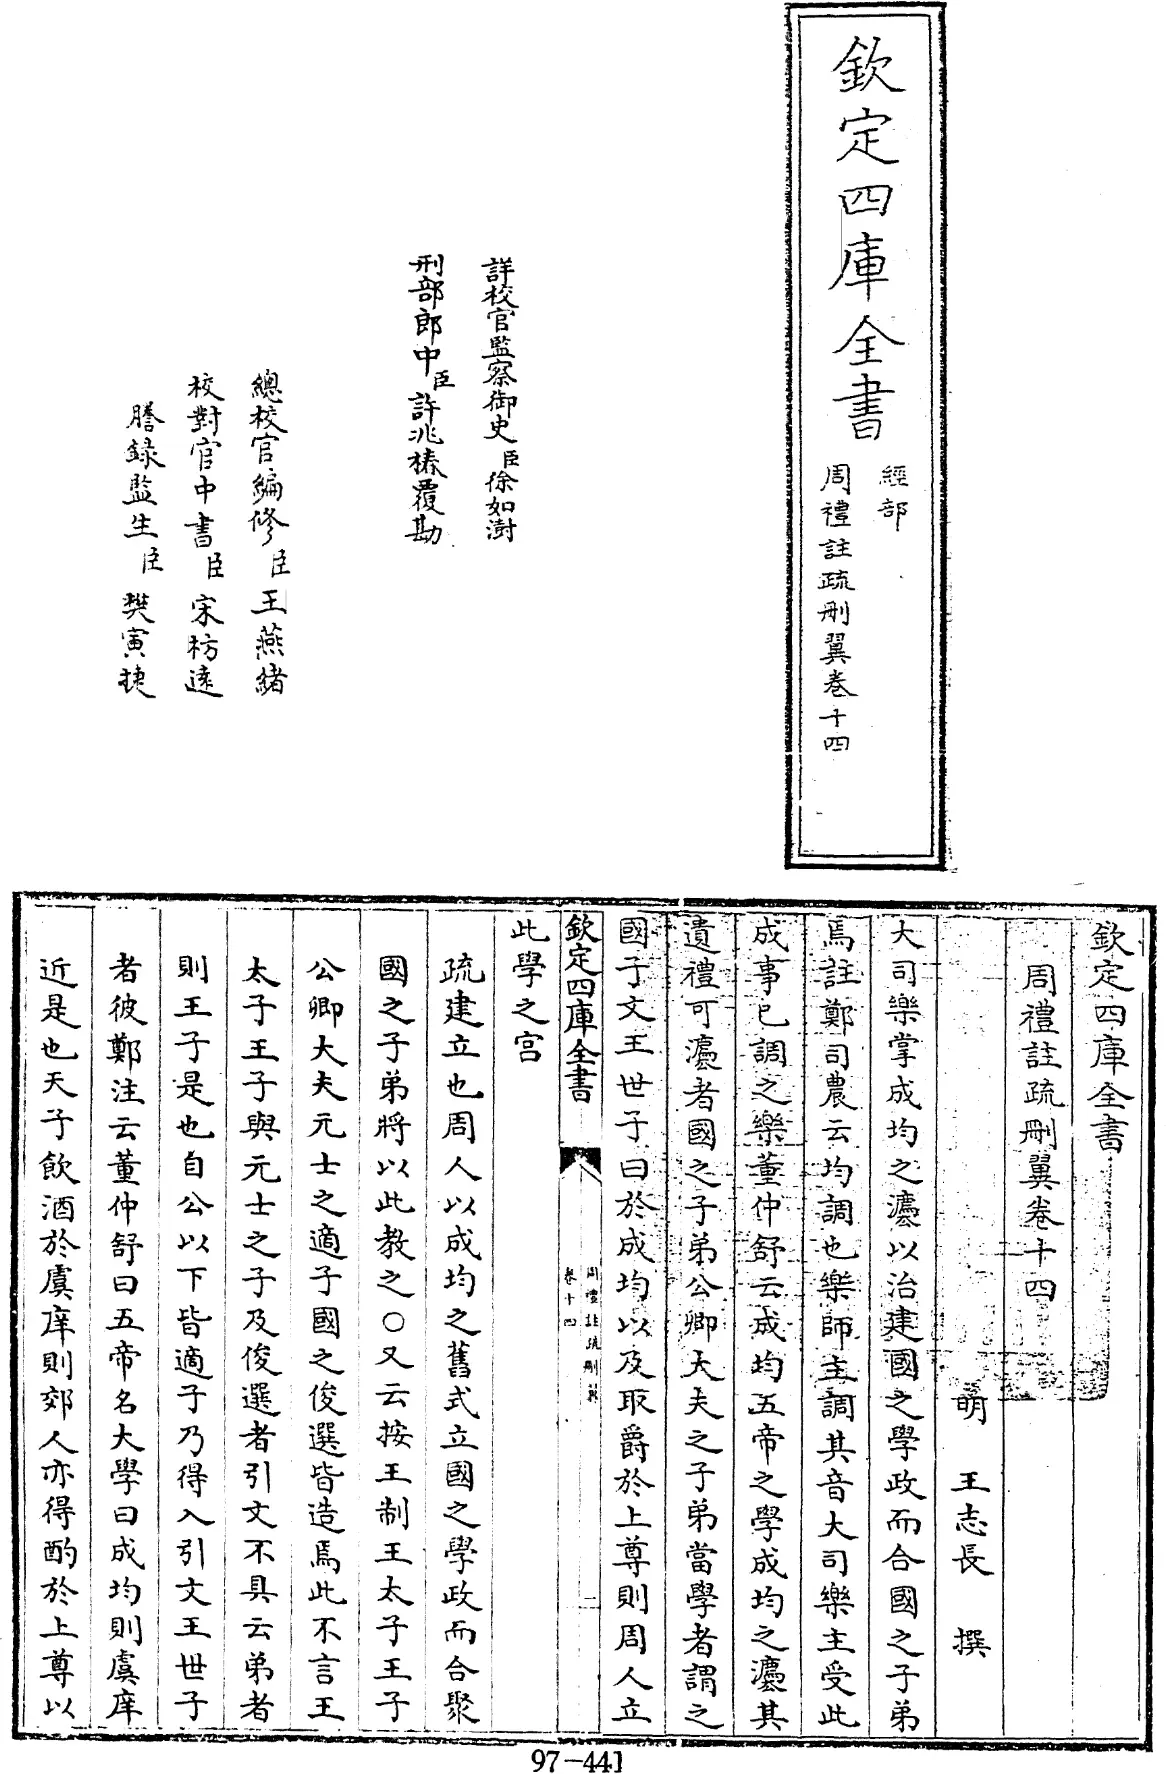 欽定四庫全書
經部
周禮註疏刪翼卷十四
詳校官監察御史臣徐如澍
刑部郎中臣許兆椿覆勘
總校官編修臣王燕緒
校對官中書臣宋枋遠
謄錄監生臣樊寅捷
欽定四庫全書
周禮註疏刪翼卷十四
明 王志長 撰
大司樂掌成均之灋以治建國之學政而合國之子弟
焉註鄭司農云均調也樂師主調其音大司樂主受此
成事已調之樂董仲舒云成均五帝之學成均之灋其
遺禮可灋者國之子弟公卿大夫之子弟當學者謂之
國子文王世子曰於成均以及取爵於上尊則周人立
欽定四庫全書
周禮註疏刪翼
卷十四
二
此學之宫
疏建立也周人以成均之舊式立國之學政而合聚
國之子弟將以此教之○又云按王制王太子王子
公卿大夫元士之適子國之俊選皆造焉此不言王
太子王子與元士之子及俊選者引文不具云弟者
則王子是也自公以下皆適子乃得入引文王世子
者彼鄭注云董仲舒曰五帝名大學曰成均則虞庠
近是也天子飲酒於虞庠則郊人亦得酌於上尊以
97-441